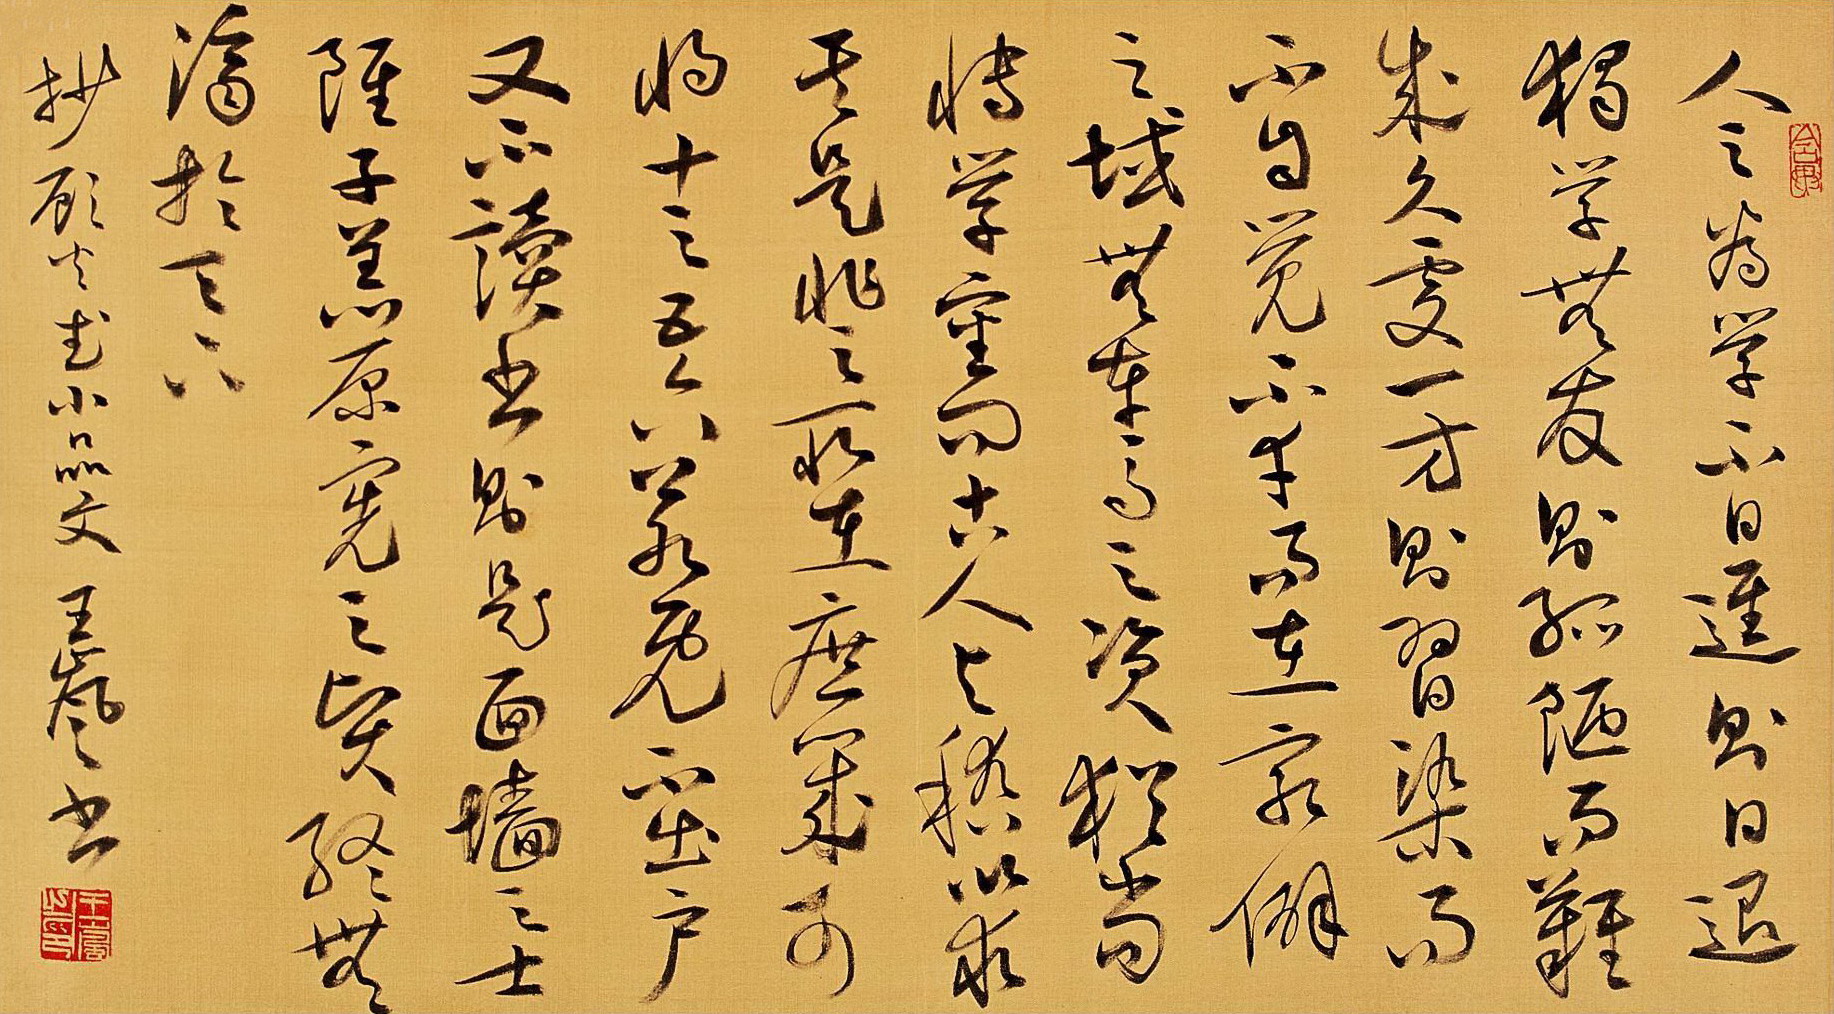 人之為學不日進則日退
獨學無友則孤陋而難
成久處一方則習染而
不自覺不幸而在窮僻
之域無車馬之資猶當
博學審問古人與稽以求
其是非之所在庶幾可
得十之五六若既不出戶
又不讀書則是面墻之士
雖子羔原憲之賢終無
濟於天下
抄顧炎武小品文 王嵐書